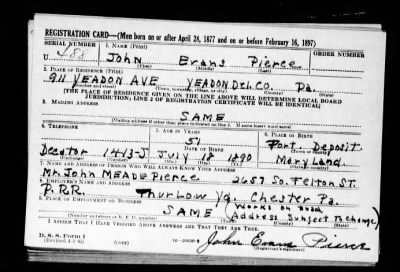 REGISTRATION CARD—(Men born on or after April 28, 1877 and on or before February 16, 1897)
SERIAL NUMBER 1. NAME (Print) ORDER NUMBER
U 488 John Evans Pierce
(First) (Middle) (Last)
2. PLACE OF RESIDENCE (Print)
911 YEADON AVE YEADON DEL.CO. Pa.
(Number and street) (Town, township, village, or city) (County) (State)
[THE PLACE OF RESIDENCE GIVEN ON THE LINE ABOVE WILL DETERMINE LOCAL BOARD
JURISDICTION; LINE 2 OF REGISTRATION CERTIFICATE WILL BE IDENTICAL]
3. MAILING ADDRESS
SAME
[Mailing address if other than place indicated on line 2. If same insert word same]
4. TELEPHONE 5. AGE IN YEARS 6. PLACE OF BIRTH
51 Port Deposit
DATE OF BIRTH
Decator 1413-J July 18 1890 Maryland
7. NAME AND ADDRESS OF PERSON WHO WILL ALWAYS KNOW YOUR ADDRESS
Mr. John MEADE Pierce 2657 So. Felton St.
8. EMPLOYER'S NAME AND ADDRESS
P.R.R. Thurlow Yd. Chester Pa.
9. PLACE OF EMPLOYMENT OR BUSINESS
SAME (Works on Road
(Address Subject To Change)
I AFFIRM THAT I HAVE VERIFIED ABOVE ANSWERS AND THAT THEY ARE TRUE.
D. S. S. Form 1
(Revised 4-1-42) (over)
John Evans Pierce